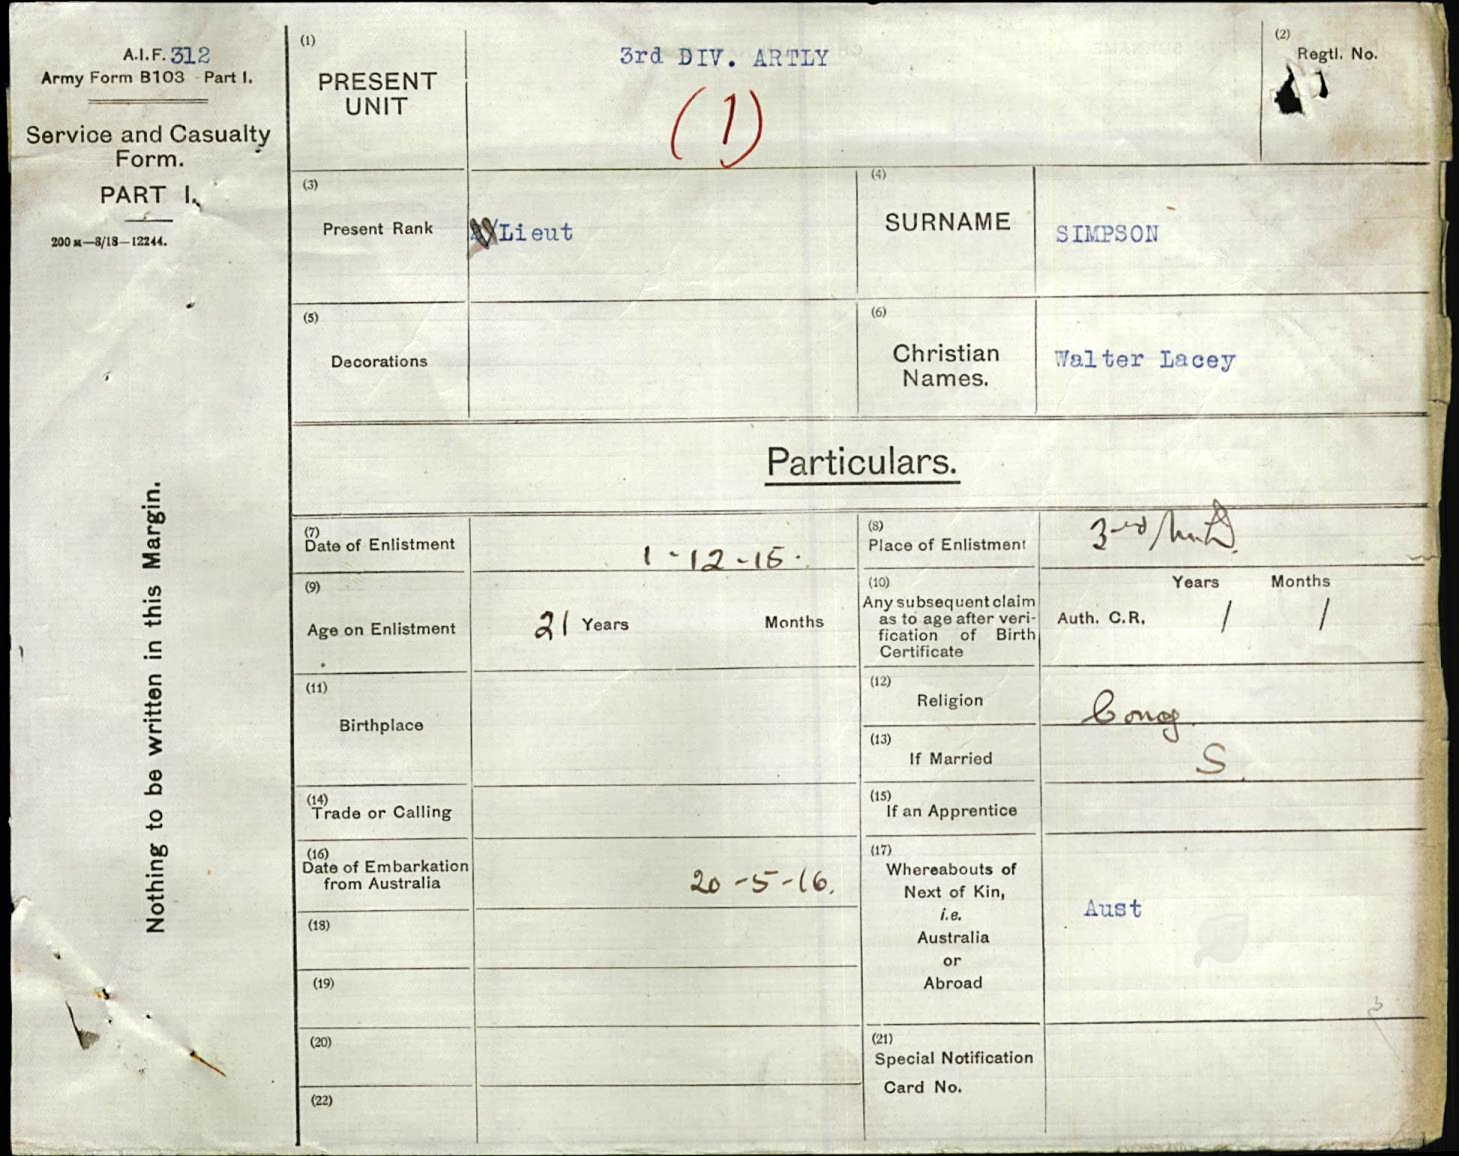 A.I.F. 312
Army Form B103 Part I.
Service and Casualty
Form.
PART I.
200 M—8/18—12244.
Nothing to be written in this Margin.
(1)
PRESENT
UNIT
3rd DIV. ARTLY
(1)
(2)
Regtl. No.
(3)
Present Rank
Lieut
(4)
SURNAME
SIMPSON
(5)
Decorations
(6)
Christian
Names.
Walter Lacey
Particulars.
(7)
Date of Enlistment
1-12-15.
(8)
Place of Enlistment
3rd
(9)
Age on Enlistment
21 Years Months
(10)
Any subsequent claim
as to age after veri-
fication of Birth
Certificate
Years Months
Auth. C.R. / /
(11)
Birthplace
(12)
Religion
Cong.
(13)
If Married
S.
(14)
Trade or Calling
(15)
If an Apprentice
(16)
Date of Embarkation
from Australia
20-5-16.
(17)
Whereabouts of
Next of Kin,
i.e.
Australia
or
Abroad
Aust
(18)
(19)
(20)
(21)
Special Notification
Card No.
(22)